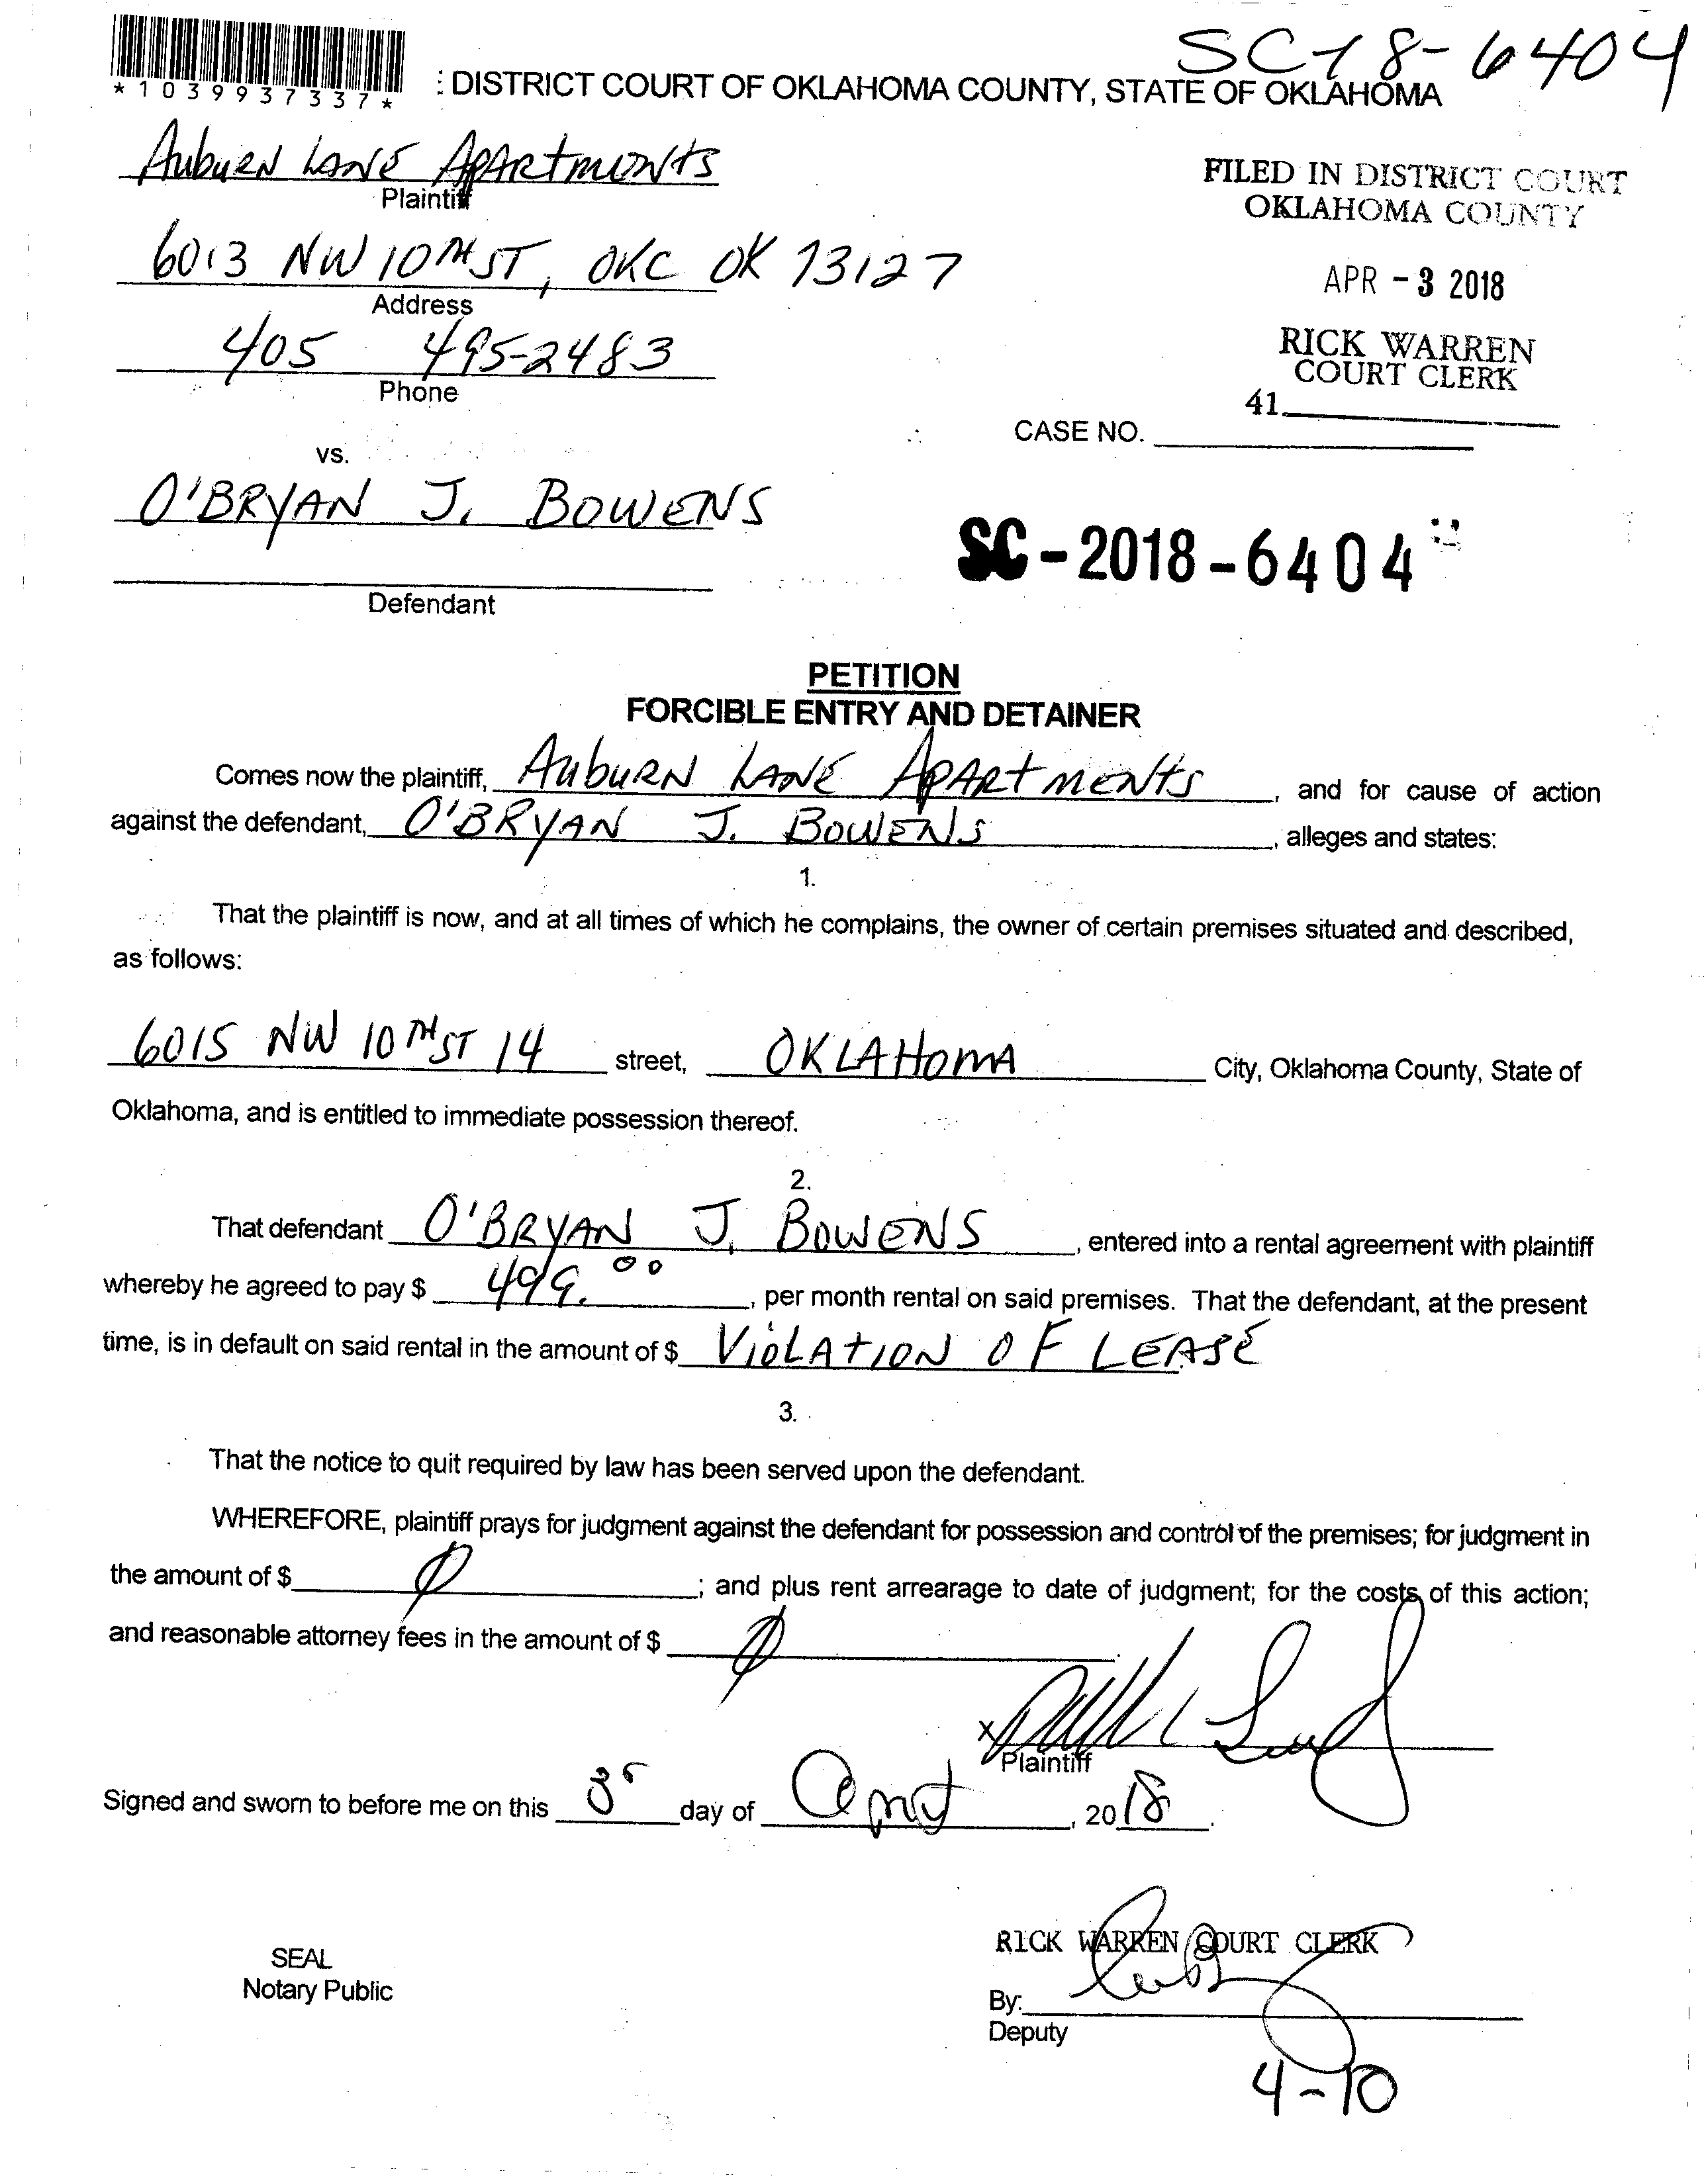 SC18-6404
*1039937337*
: DISTRICT COURT OF OKLAHOMA COUNTY, STATE OF OKLAHOMA
AuburN LANE APARtmENts
Plaintiff
FILED IN DISTRICT COURT
OKLAHOMA COUNTY
6013 NW 10TH ST, OKC OK 73127
Address
APR - 3 2018
405 495-2483
Phone
RICK WARREN
COURT CLERK
41
CASE NO.
vs.
O'BRYAN J. BOWENS
SC-2018-6404
Defendant
PETITION
FORCIBLE ENTRY AND DETAINER
Comes now the plaintiff, AuburN LANE APARtMENts, and for cause of action
against the defendant, O'BRYAN J. BOWENS, alleges and states:
1.
That the plaintiff is now, and at all times of which he complains, the owner of certain premises situated and described,
as follows:
6015 NW 10TH ST 14 street, OKLAHOMA City, Oklahoma County, State of
Oklahoma, and is entitled to immediate possession thereof.
2.
That defendant O'BRYAN J. BOWENS, entered into a rental agreement with plaintiff
whereby he agreed to pay $ 499.00, per month rental on said premises. That the defendant, at the present
time, is in default on said rental in the amount of $ VIOLATION OF LEASE
3.
That the notice to quit required by law has been served upon the defendant.
WHEREFORE, plaintiff prays for judgment against the defendant for possession and control of the premises; for judgment in
the amount of $ Ø; and plus rent arrearage to date of judgment; for the costs of this action;
and reasonable attorney fees in the amount of $ Ø.
X
Plaintiff
Signed and sworn to before me on this 3r day of April, 2018.
RICK WARREN COURT CLERK
SEAL
Notary Public
By:
Deputy
4-10